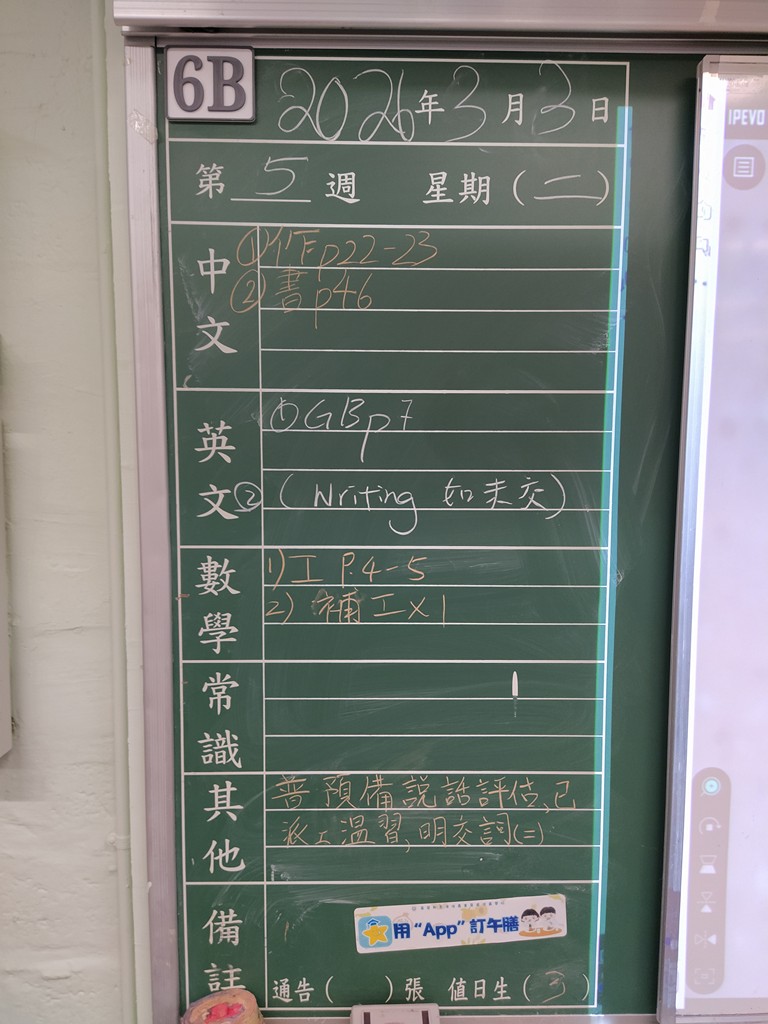 6B
2026年3月3日
第5週 星期(二)
中文
①作p22-23
②書p46
英文
①GBp7
②(Writing 如未交)
數學
1)工 P.4-5
2) 補工x1
常識
其他
普 預備說話評估,已
派工溫習,明交詞(二)
備註
用“App”訂午膳
通告( )張 值日生(3)
IPEVO